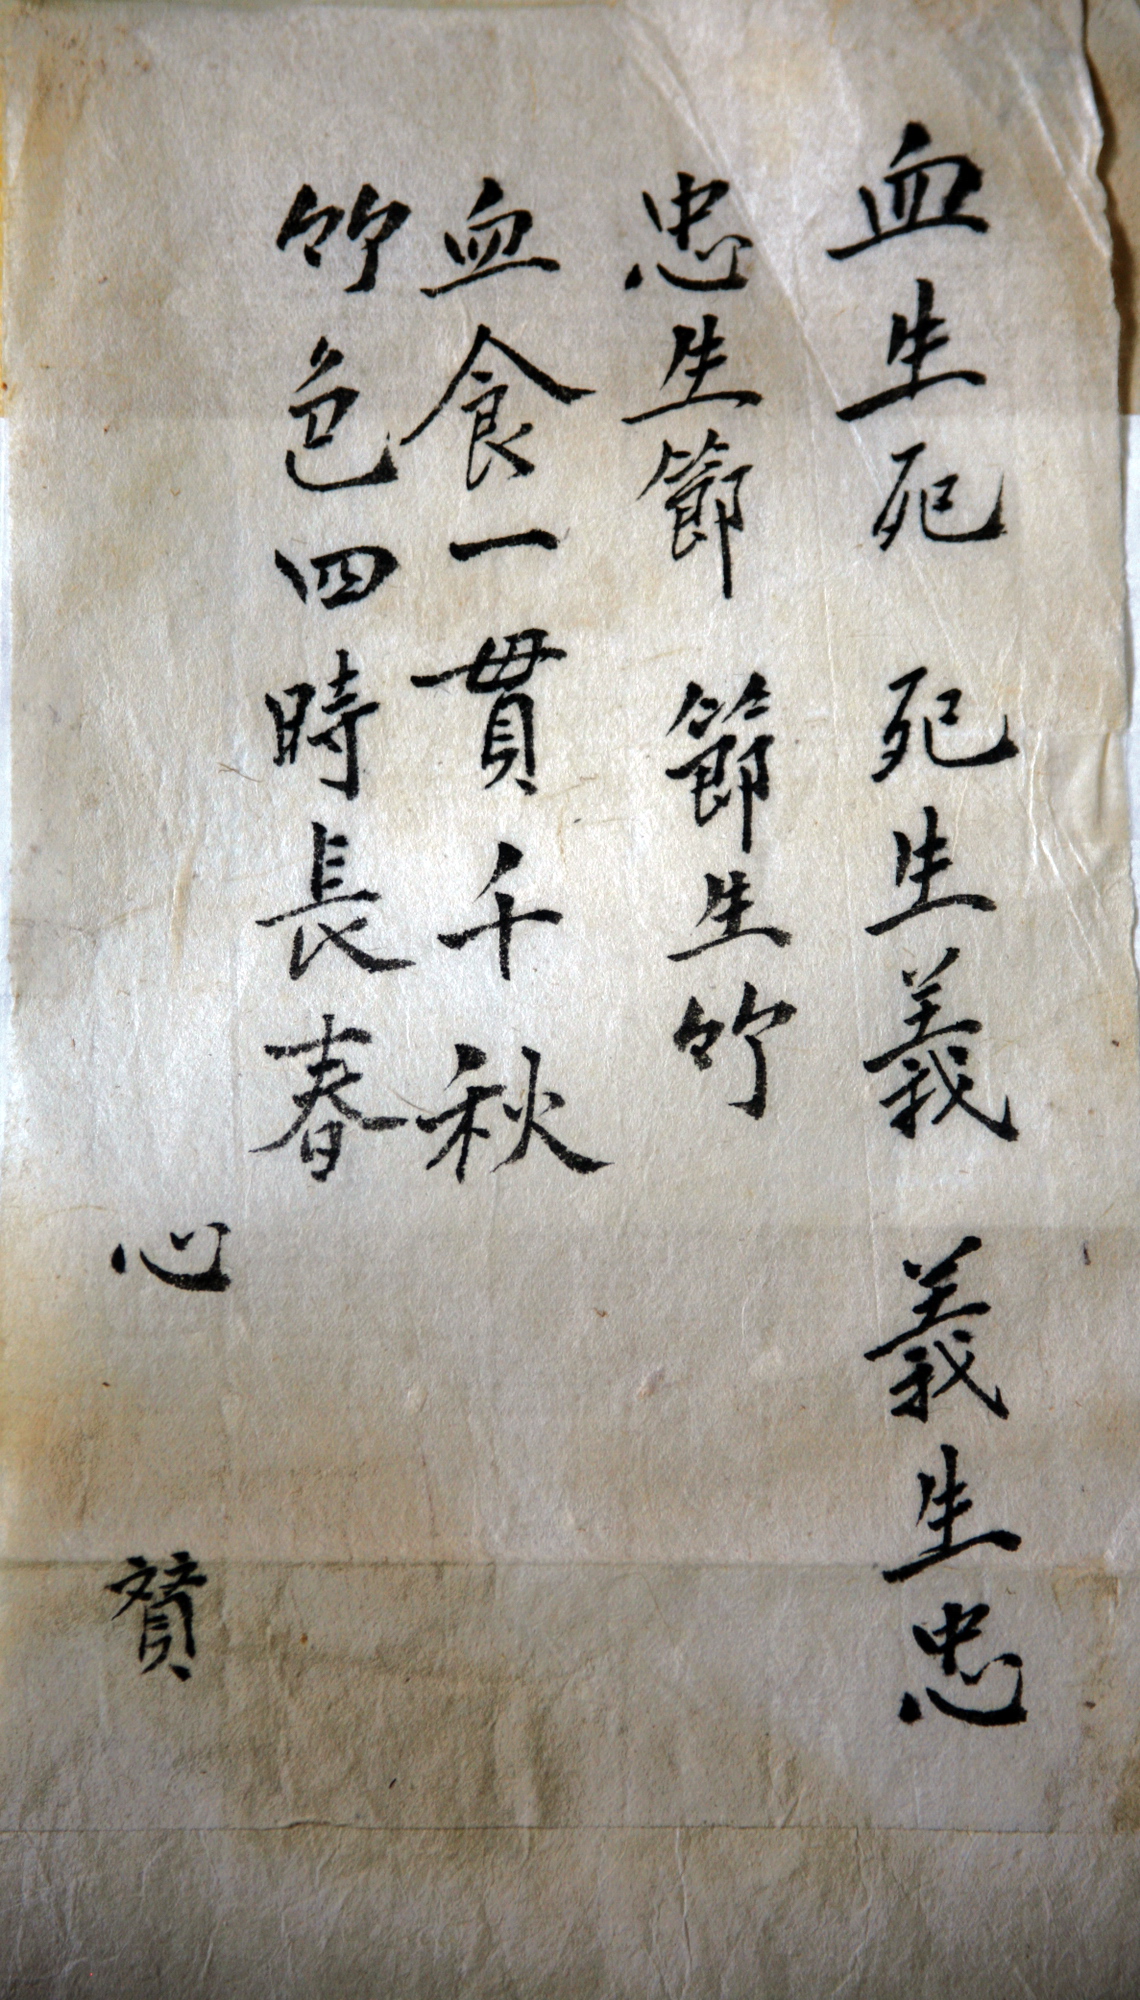 血生死 死生義 義生忠
忠生節 節生竹
血食一貫千秋
竹色四時長春
心 贇